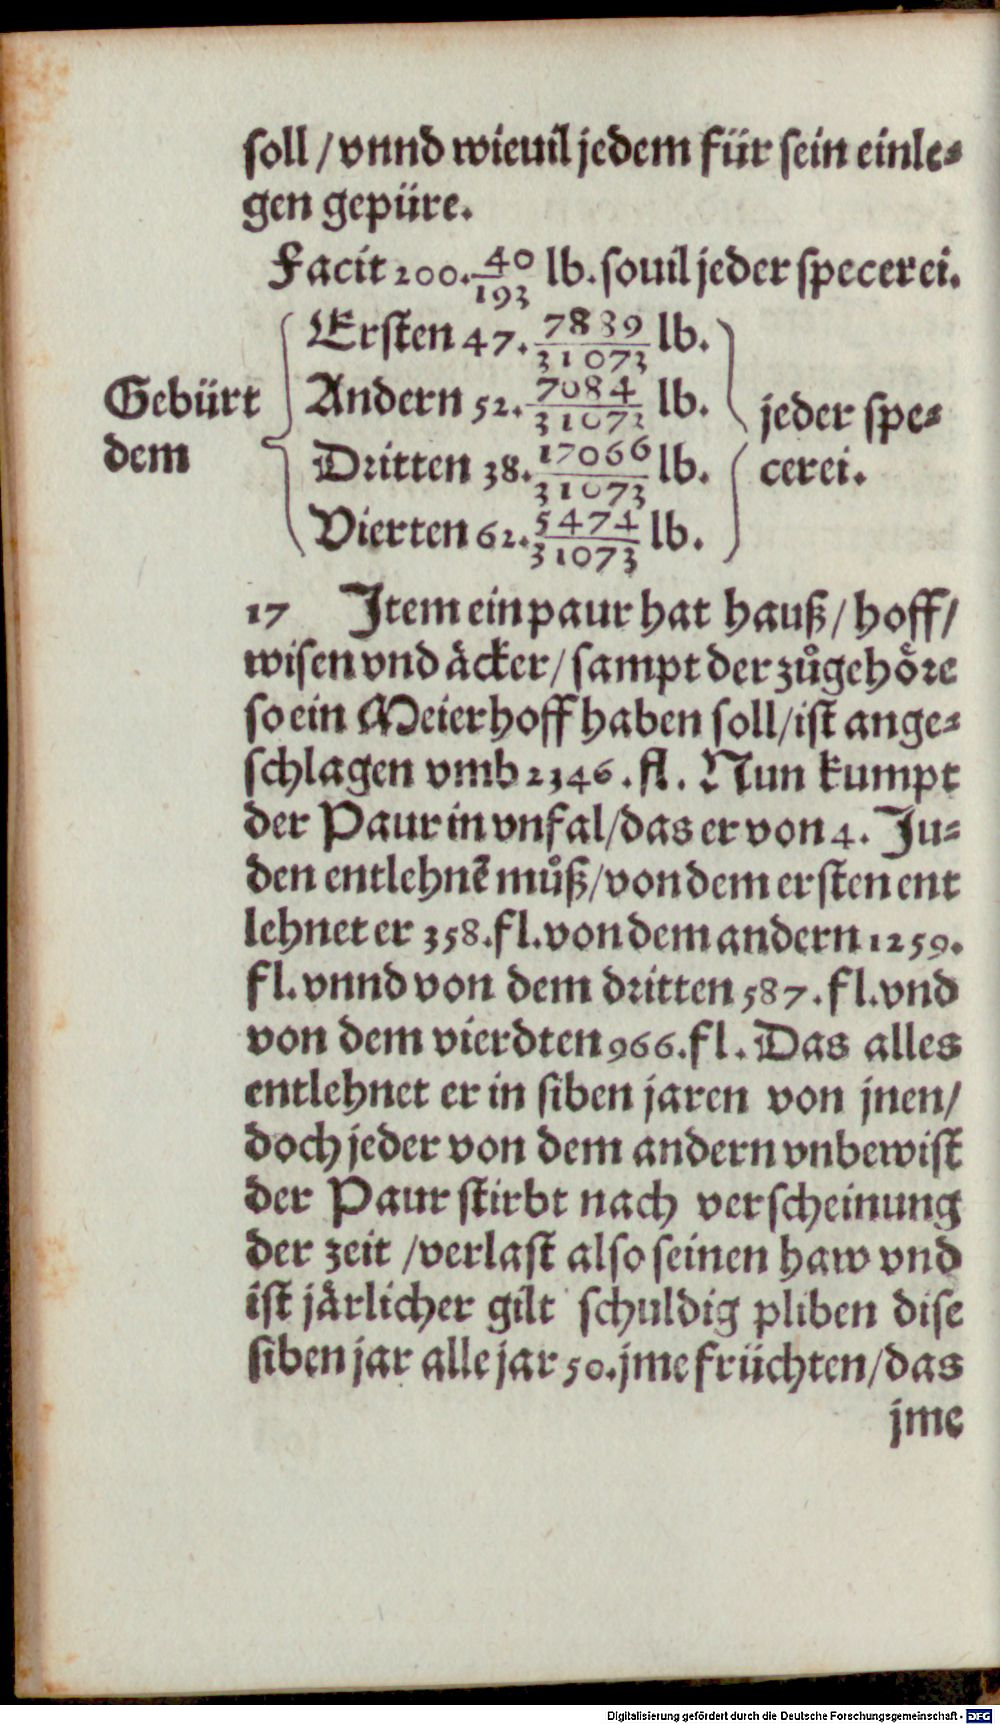 soll / vnnd wieuil jedem für sein einle⸗
gen gepüre.
Facit 200. 40/193 lb. souil jeder specerei.
Gebürt dem
Ersten 47. 7839/31073 lb.
Andern 52. 7084/31073 lb.
Dritten 38. 17066/31073 lb.
Vierten 62. 5474/31073 lb.
jeder spe⸗
cerei.
17 Item ein paur hat hauß / hoff /
wisen vnd äcker / sampt der zůgehöre
so ein Meierhoff haben soll / ist ange⸗
schlagen vmb 2346. fl. Nun kumpt
der Paur in vnfal / das er von 4. Ju⸗
den entlehnẽ můß / von dem ersten ent
lehnet er 358. fl. von dem andern 1259.
fl. vnnd von dem dritten 587. fl. vnd
von dem vierdten 966. fl. Das alles
entlehnet er in siben jaren von jnen /
doch jeder von dem andern vnbewist
der Paur stirbt nach verscheinung
der zeit / verlast also seinen haw vnd
ist järlicher gilt schuldig pliben dise
siben jar alle jar 50. jme früchten / das
jme
Digitalisierung gefördert durch die Deutsche Forschungsgemeinschaft - DFG